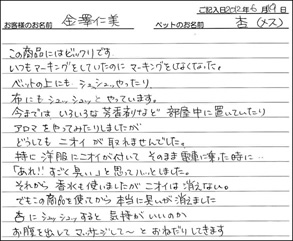 ご記入日2012年6月19日
お客様のお名前 金澤仁美 ペットのお名前 杏(メス)
この商品にはビックリです
いつもマーキングをしていたのにマーキングをしなくなった。
ペットの上にも シュシュッやったり
布にもシュッシュッとやっています。
今までは いろいろな 芳香剤など 部屋中に置いていたり
アロマをやってみたりしましたが
どうしても ニオイ が 取れませんでした。
特に 洋服にニオイが付いて そのまま電車に奪った時に…
「あれ!!すごく臭い」と思ってハッとしました。
それから 香水も使いましたが ニオイは 消えない。
でもこの商品を使ってから 本当に臭いが消えました
杏にシュッシュッすると 気持ちがいいのか
お腹を出して マッサージして〜と おねだりしてきます